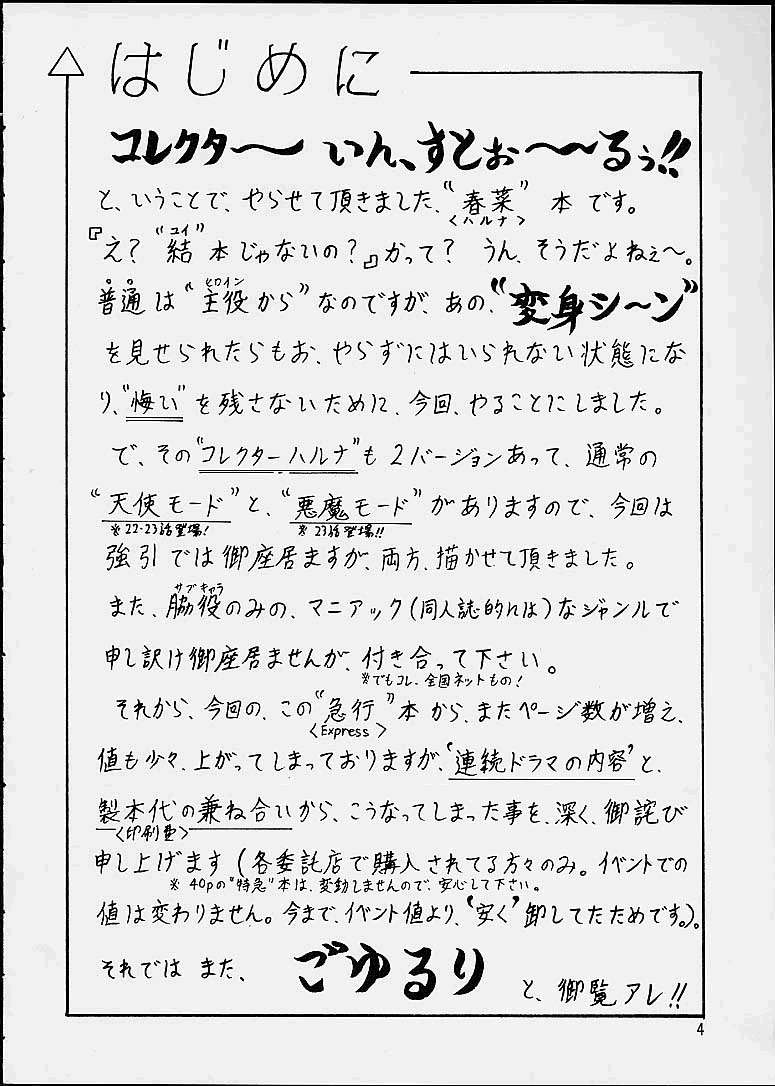 はじめに
コレクター〜 いん、すとぉ〜〜るぅ!!
と、いうことで、やらせて頂きました、“春菜” 本です。
<ハルナ>
『え?“結”本じゃないの?』かって? うん、そうだよねぇ〜。
ユイ
普通は“主役から”なのですが、あの、“変身シ〜ン”
ヒロイン
を見せられたらもお、やらずにはいられない状態にな
り、“悔い”を残さないために、今回、やることにしました。
で、その“コレクターハルナ”も2バージョンあって、通常の
“天使モード”と、“悪魔モード”がありますので、今回は
※22・23話登場! ※23話登場!!
強引では御座居ますが、両方、描かせて頂きました。
サブキャラ
また、脇役のみの、マニアック(同人誌的には)なジャンルで
申し訳け御座居ませんが、付き合って下さい。
※でもコレ、全国ネットもの!
それから、今回の、この“急行”本から、またページ数が増え、
<Express>
値も少々、上がってしまっておりますが、‘連続ドラマの内容’と、
製本代の兼ね合いから、こうなってしまった事を、深く、御詫び
<印刷費>
申し上げます(各委託店で購入されてる方々のみ。イベントでの
※40pの“特急”本は、変動しませんので、安心して下さい。
値は変わりません。今まで、イベント値より、‘安く’卸してたためです。)。
それでは また、 ごゆるり と、御覧アレ!!
4